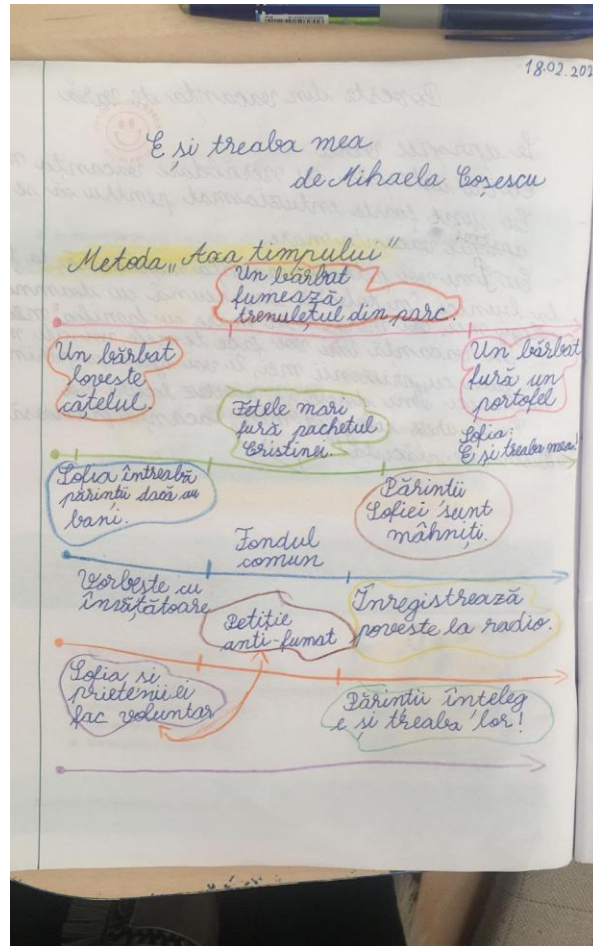 18.02.202
E și treaba mea
de Mihaela Coșescu
Metoda „Axa timpului"
Un bărbat
fumează
trenulețul din parc.
Un bărbat
lovește
cățelul.
Un bărbat
fură un
portofel
Fetele mari
fură pachetul
Cristinei.
Sofia:
E și treaba mea!
Sofia întreabă
părinții dacă au
bani.
Părinții
Sofiei sunt
mâhniți.
Fondul
comun
Vorbește cu
învățătoare
Petiție
anti-fumat
Înregistrează
poveste la radio.
Sofia si
prietenii ei
fac voluntar
Părinții înțeleg
e și treaba lor!